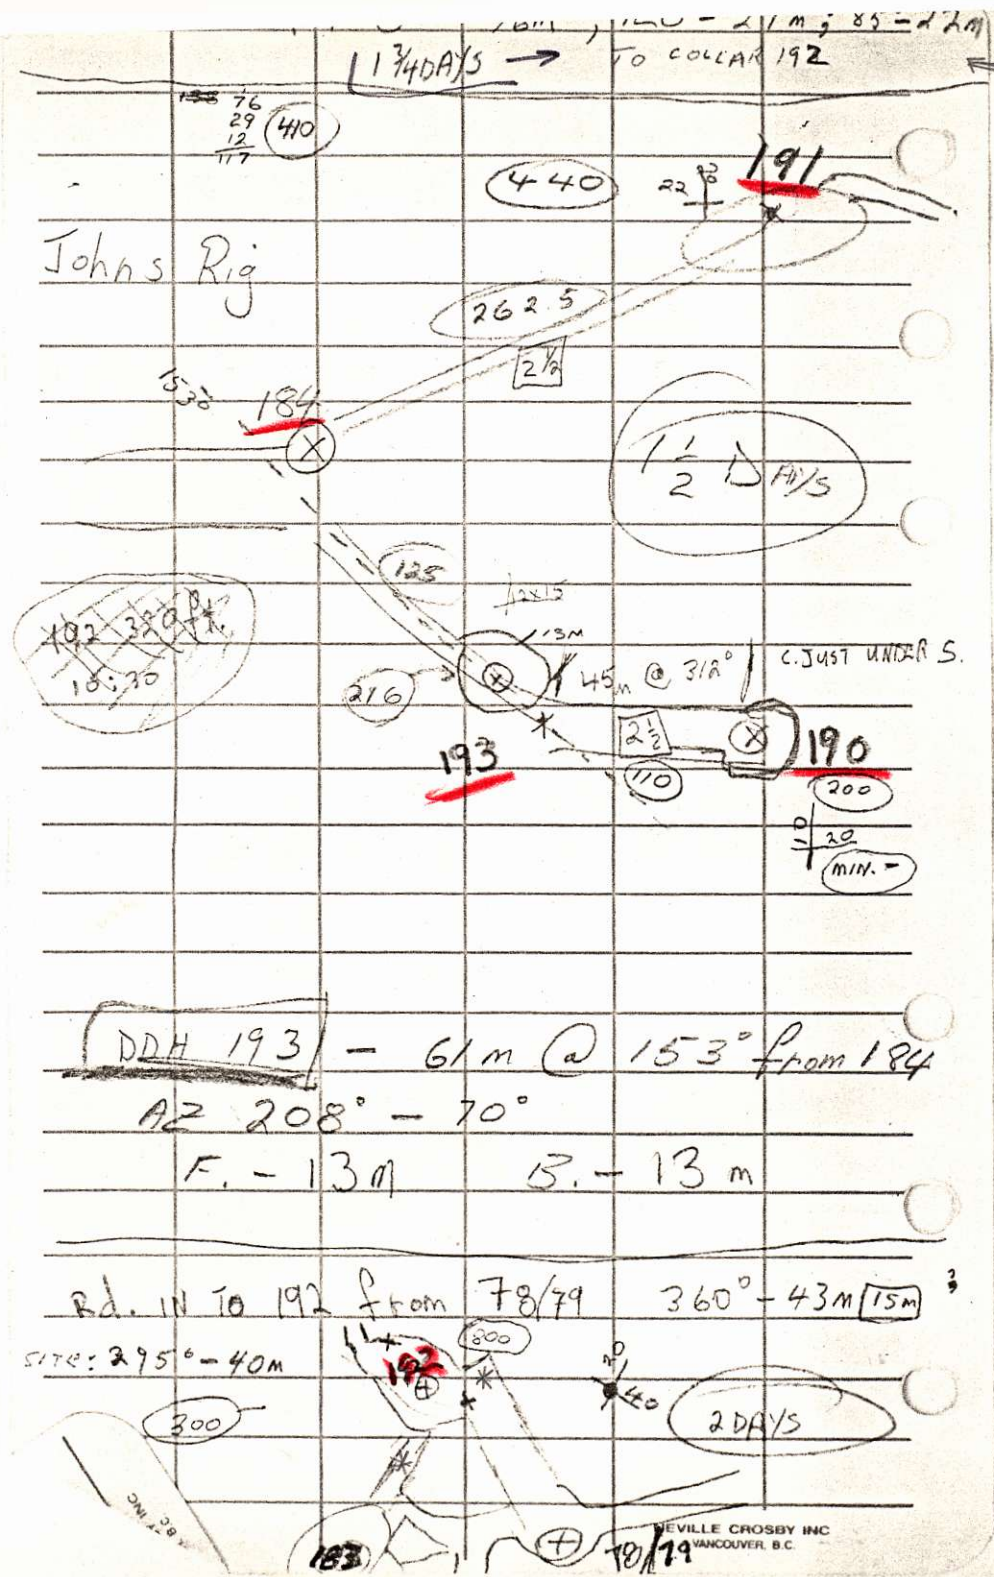 76m, 120 - 27m; 85 - 22m
1 3/4 DAYS → TO COLLAR 192
76
29
12
117
410
191
440
22
Johns Rig
262.5
2 1/2
1530
184
1 1/2 DAYS
125
12x15
192 320 ft.
10:30
13M
45m @ 312°
C. JUST UNDER S.
216
2 1/2
193
190
110
200
10 20
MIN. -
DDH 193 - 61m @ 153° from 184
AZ 208° - 70°
F. - 13M B. - 13 m
Rd. IN TO 192 from 78/79 360° - 43m 15m ?
SITE: 295° - 40m
192
800
20
40
300
2 DAYS
NEVILLE CROSBY INC
VANCOUVER, B.C.
183
78/79